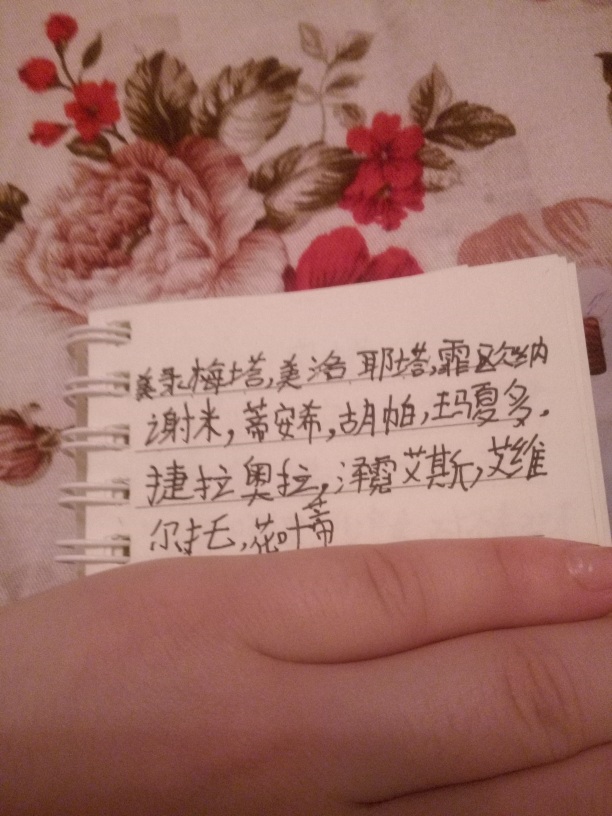 美录梅塔,美洛耶塔,霏欧纳
谢米,蒂安希,胡帕,玛夏多.
捷拉奥拉,泽霓艾斯,艾维
尔托,花叶蒂